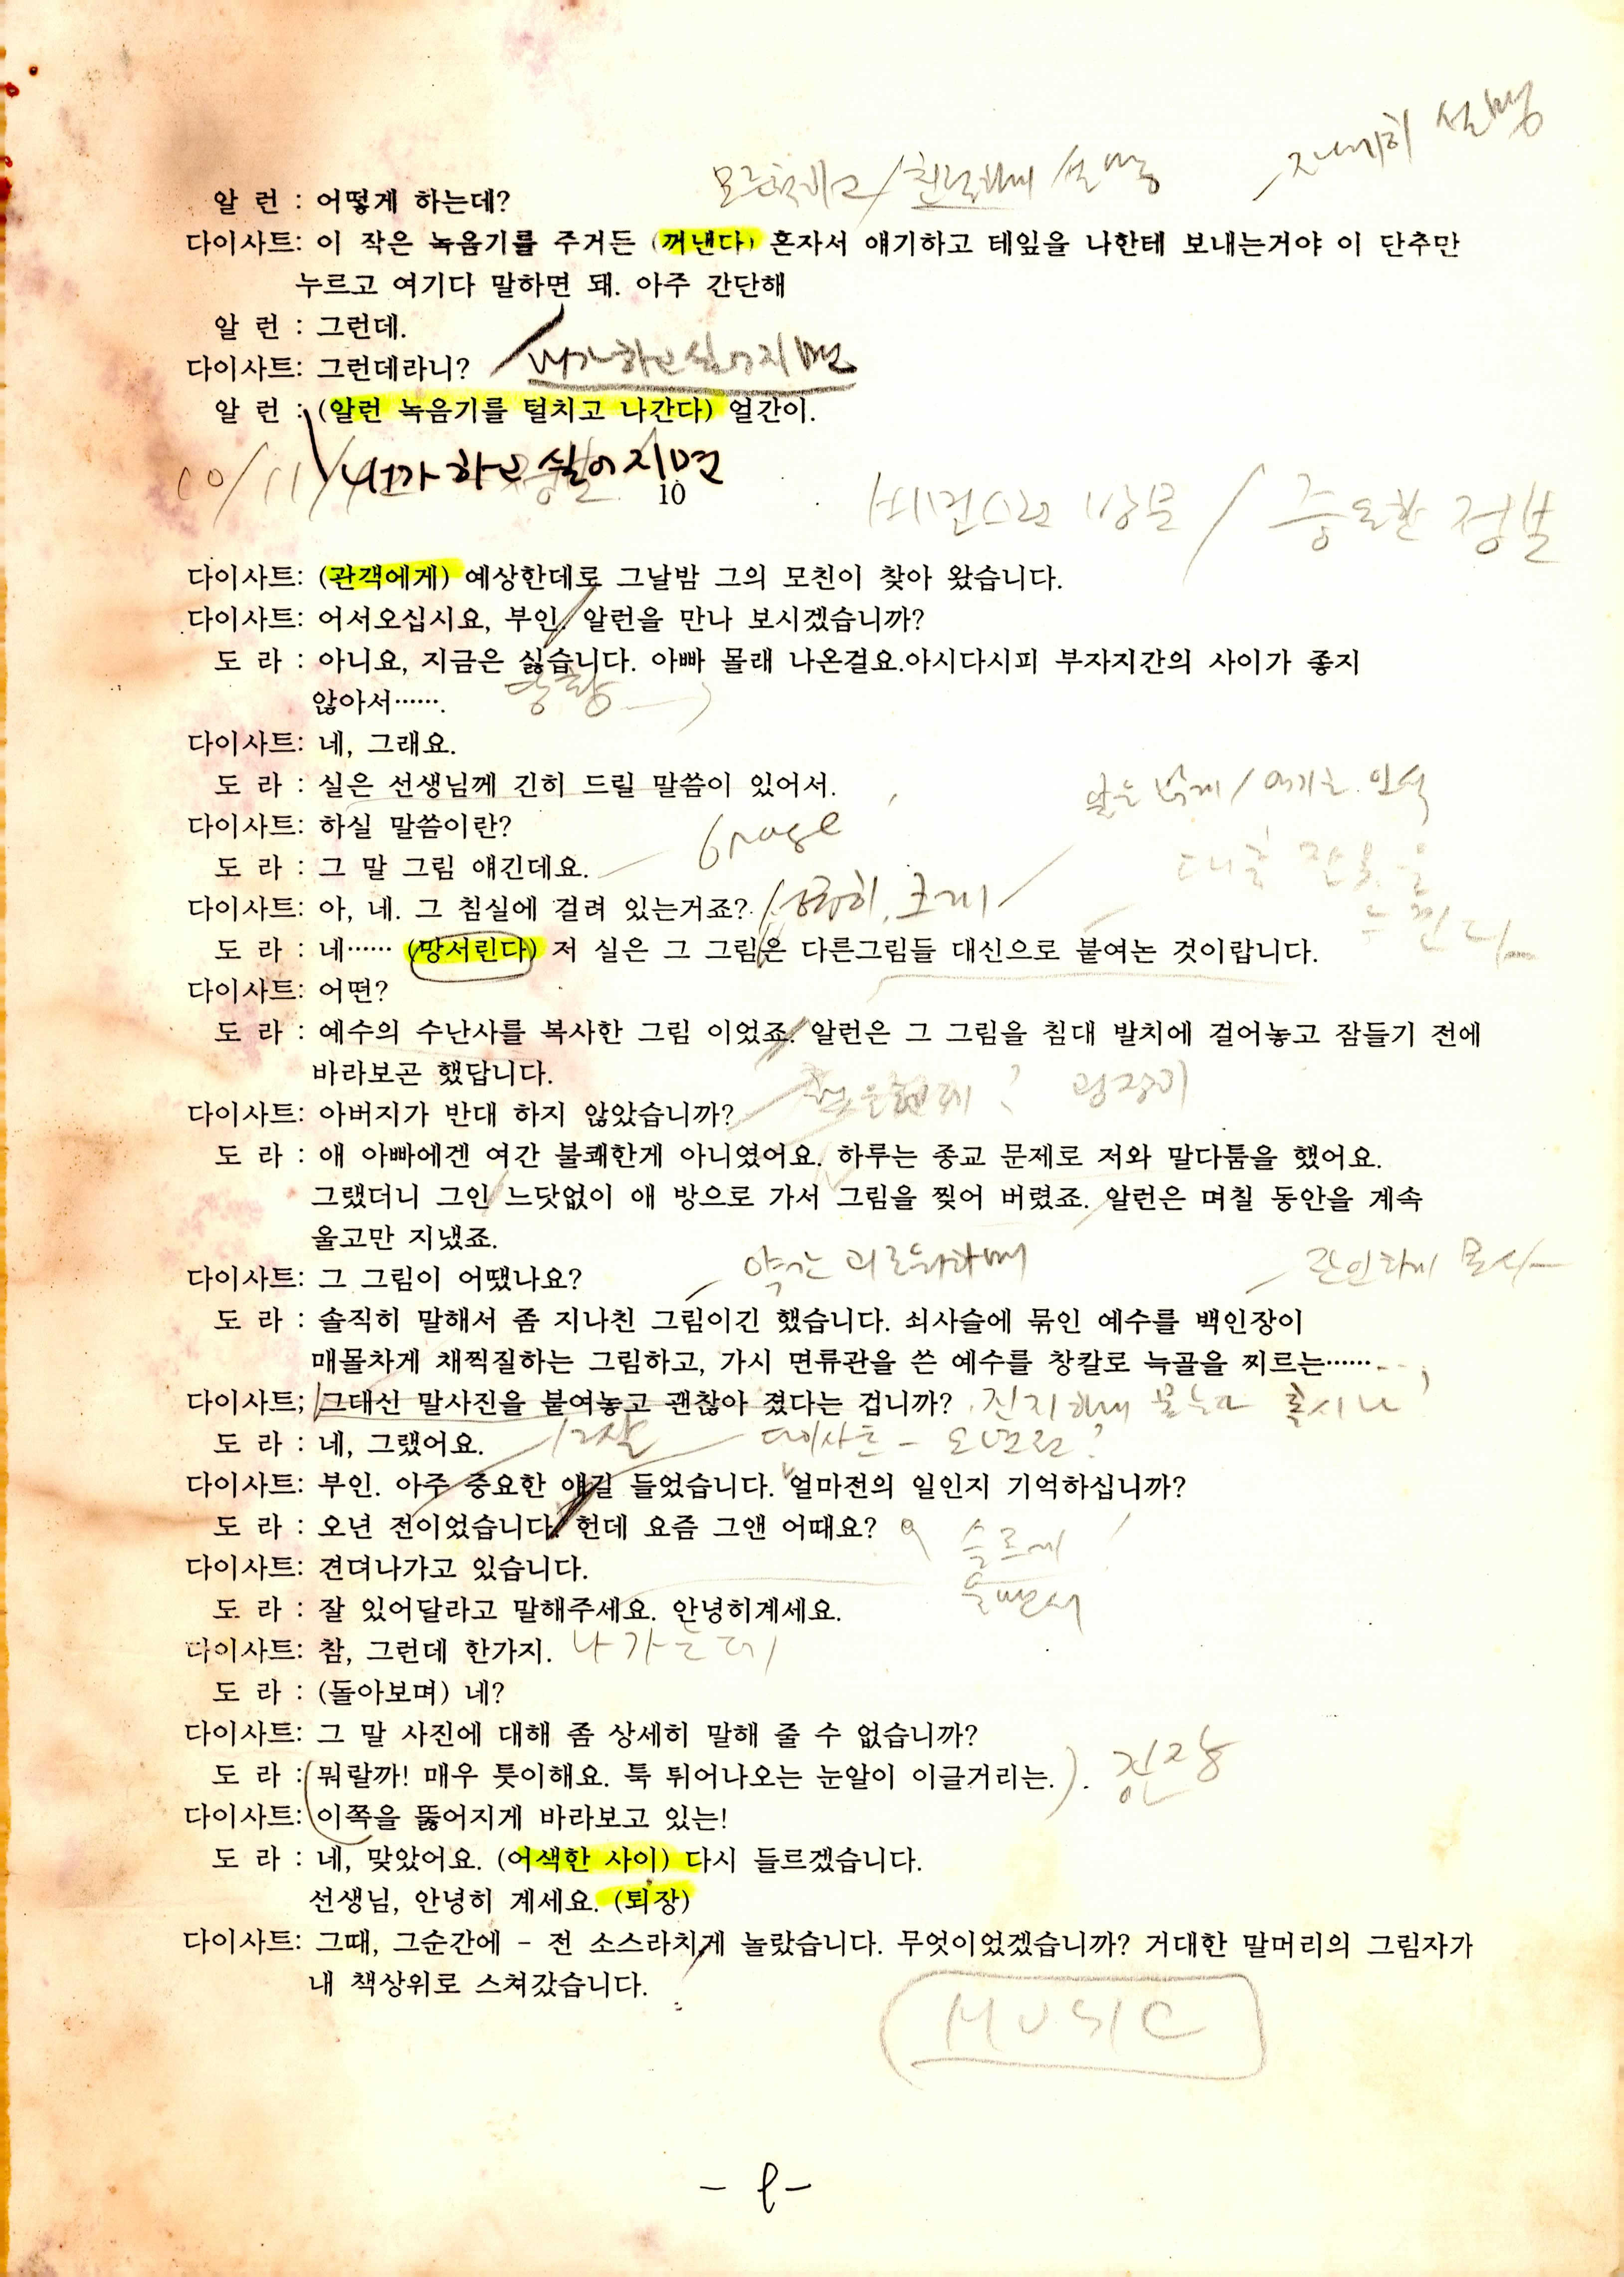 자세히 설명
친절하게 설명
알 런 : 어떻게 하는데?
다이사트: 이 작은 녹음기를 주거든 (꺼낸다) 혼자서 얘기하고 테잎을 나한테 보내는거야 이 단추만
누르고 여기다 말하면 돼. 아주 간단해
알 런 : 그런데.
다이사트: 그런데라니?
내가 하고 싶어지면
알 런 : (알런 녹음기를 털치고 나간다) 얼간이.
10/11/
내가 하고 싶어지면
10
방문 / 중요한 정보
다이사트: (관객에게) 예상한데로 그날밤 그의 모친이 찾아 왔습니다.
다이사트: 어서오십시요, 부인. 알런을 만나 보시겠습니까?
도 라 : 아니요, 지금은 싫습니다. 아빠 몰래 나온걸요.아시다시피 부자지간의 사이가 좋지
당황
않아서…….
다이사트: 네, 그래요.
도 라 : 실은 선생님께 긴히 드릴 말씀이 있어서.
다이사트: 하실 말씀이란?
도 라 : 그 말 그림 얘긴데요.
다이사트: 아, 네. 그 침실에 걸려 있는거죠?
도 라 : 네…… (망서린다) 저 실은 그 그림은 다른그림들 대신으로 붙여논 것이랍니다.
다이사트: 어떤?
도 라 : 예수의 수난사를 복사한 그림 이었죠. 알런은 그 그림을 침대 발치에 걸어놓고 잠들기 전에
바라보곤 했답니다.
다이사트: 아버지가 반대 하지 않았습니까?
굉장히
도 라 : 애 아빠에겐 여간 불쾌한게 아니였어요. 하루는 종교 문제로 저와 말다툼을 했어요.
그랬더니 그인 느닷없이 애 방으로 가서 그림을 찢어 버렸죠. 알런은 며칠 동안을 계속
울고만 지냈죠.
약간 괴로워하며
잔인하게 묘사
다이사트: 그 그림이 어땠나요?
도 라 : 솔직히 말해서 좀 지나친 그림이긴 했습니다. 쇠사슬에 묶인 예수를 백인장이
매몰차게 채찍질하는 그림하고, 가시 면류관을 쓴 예수를 창칼로 늑골을 찌르는……
다이사트; 그대선 말사진을 붙여놓고 괜찮아 졌다는 겁니까? 진지하게 묻는다 혹시나
도 라 : 네, 그랬어요.
12살
다이사트: 부인. 아주 중요한 얘길 들었습니다. 얼마전의 일인지 기억하십니까?
도 라 : 오년 전이었습니다. 헌데 요즘 그앤 어때요?
슬프게
울면서
다이사트: 견뎌나가고 있습니다.
도 라 : 잘 있어달라고 말해주세요. 안녕히계세요.
다이사트: 참, 그런데 한가지. 나가는데
도 라 : (돌아보며) 네?
다이사트: 그 말 사진에 대해 좀 상세히 말해 줄 수 없습니까?
도 라 : 뭐랄까! 매우 특이해요. 툭 튀어나오는 눈알이 이글거리는. 긴장
다이사트: 이쪽을 뚫어지게 바라보고 있는!
도 라 : 네, 맞았어요. (어색한 사이) 다시 들르겠습니다.
선생님, 안녕히 계세요. (퇴장)
다이사트: 그때, 그순간에 - 전 소스라치게 놀랐습니다. 무엇이었겠습니까? 거대한 말머리의 그림자가
내 책상위로 스쳐갔습니다.
MUSIC